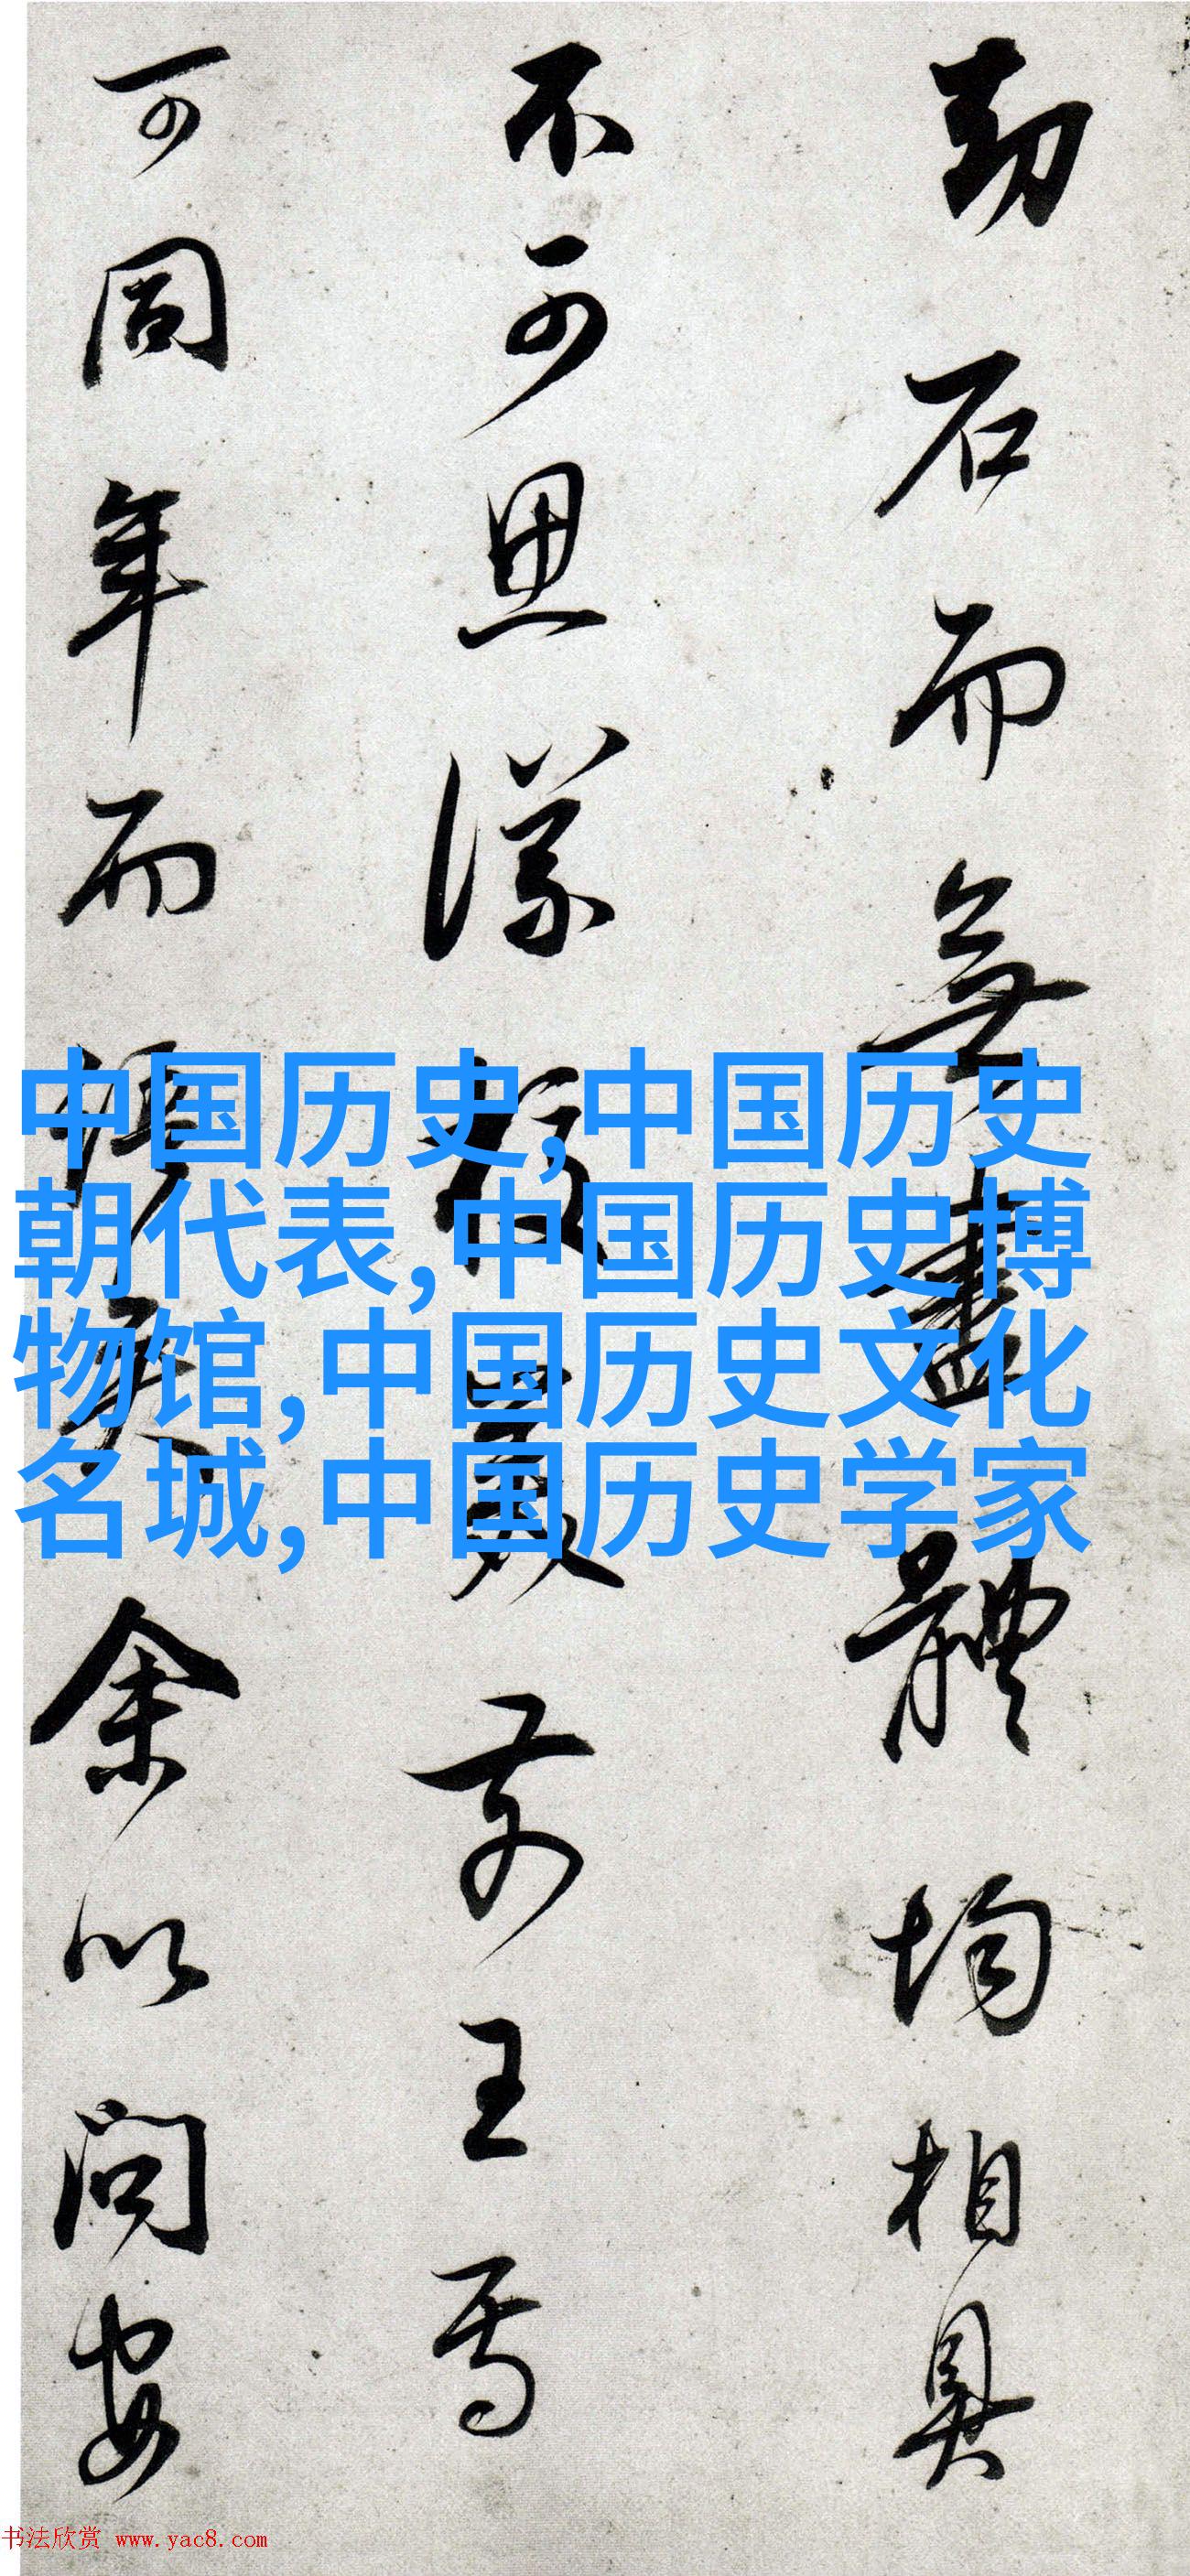 劫石而無盡體均相具
不可思議故羲前王焉
可同年而語矣余以问安
中国历史,中国历史
朝代表,中国历史博
物馆,中国历史文化
名城,中国历史学家
书法欣赏 www.yac8.com